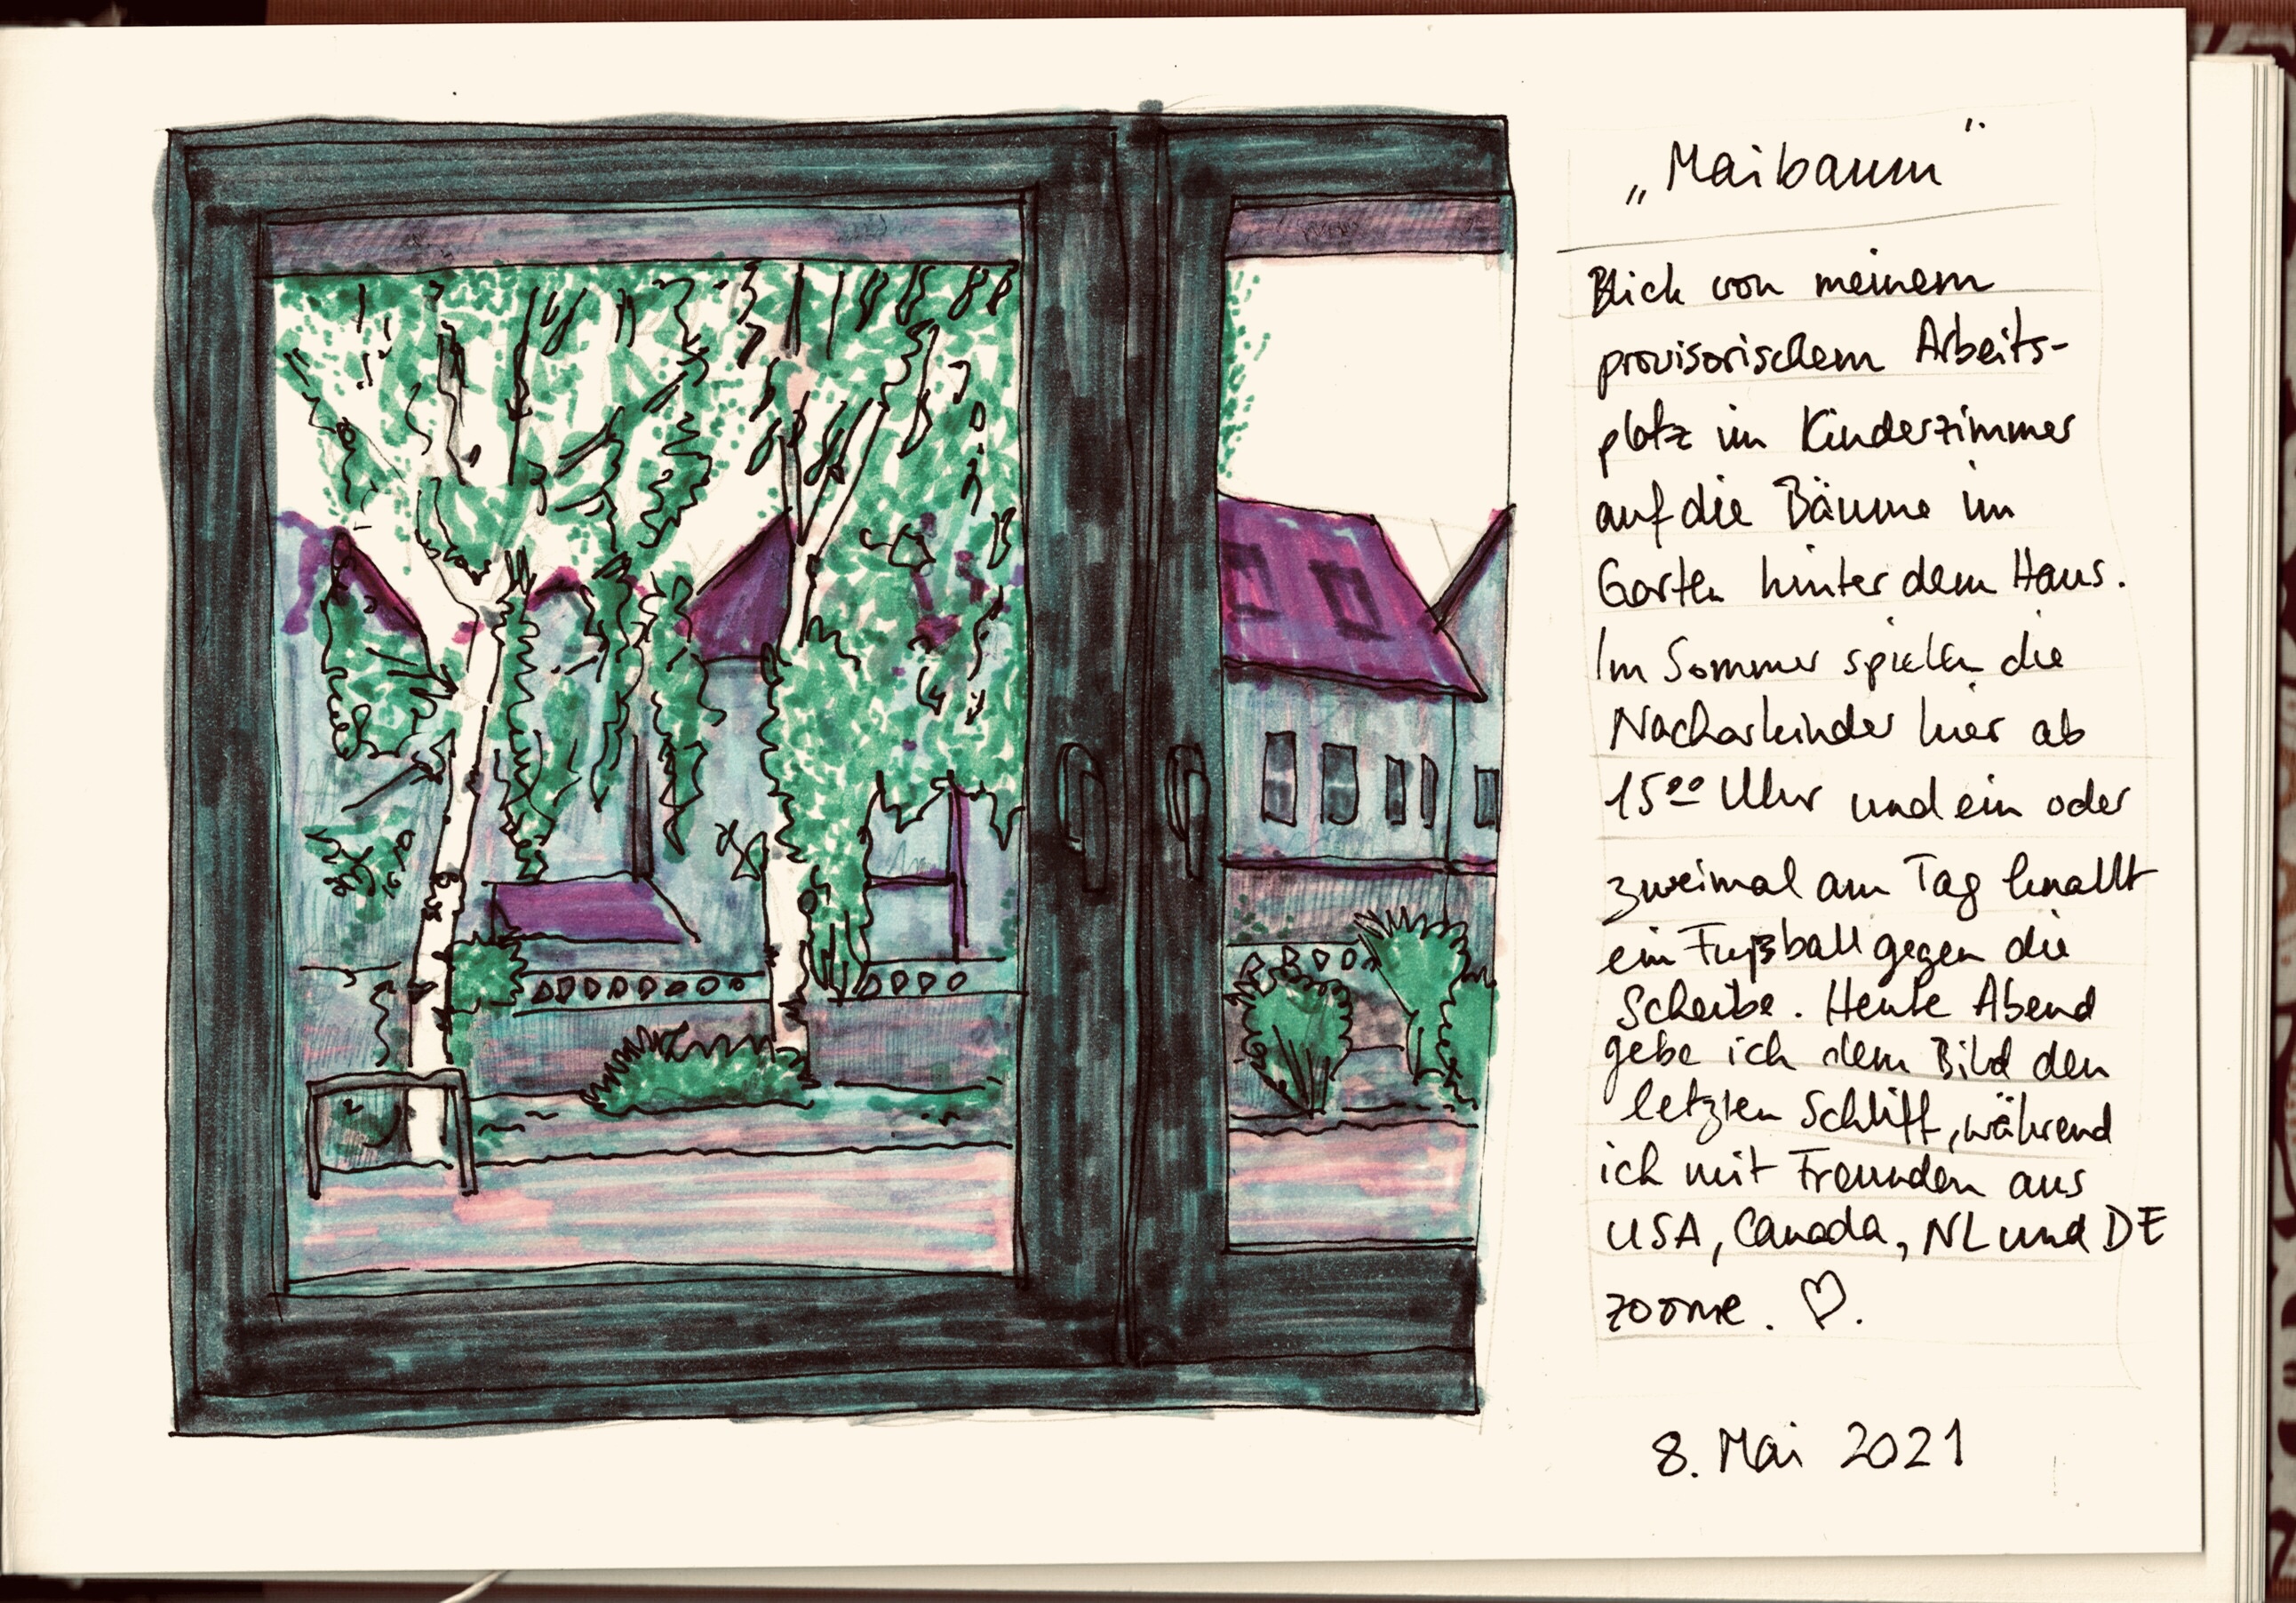 „Maibaum“
Blick von meinem
provisorischem Arbeits-
platz im Kinderzimmer
auf die Bäume im
Garten hinter dem Haus.
Im Sommer spielen die
Nacharkinder hier ab
15⁰⁰ Uhr und ein oder
zweimal am Tag knallt
ein Fußball gegen die
Scheibe. Heute Abend
gebe ich dem Bild den
letzten Schliff, während
ich mit Freunden aus
USA, Canada, NL und DE
zoome. ♡.
8. Mai 2021